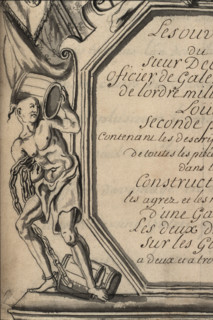 Les ouv
du
Sieur De
officier de Gale
de l'ordre mili
Lou
Seconde p
Contenant les descri
de toutes les piec
dans l
Construct
les agrez et les
d'une Ga
Les deux d
sur les G
a deux et a tro